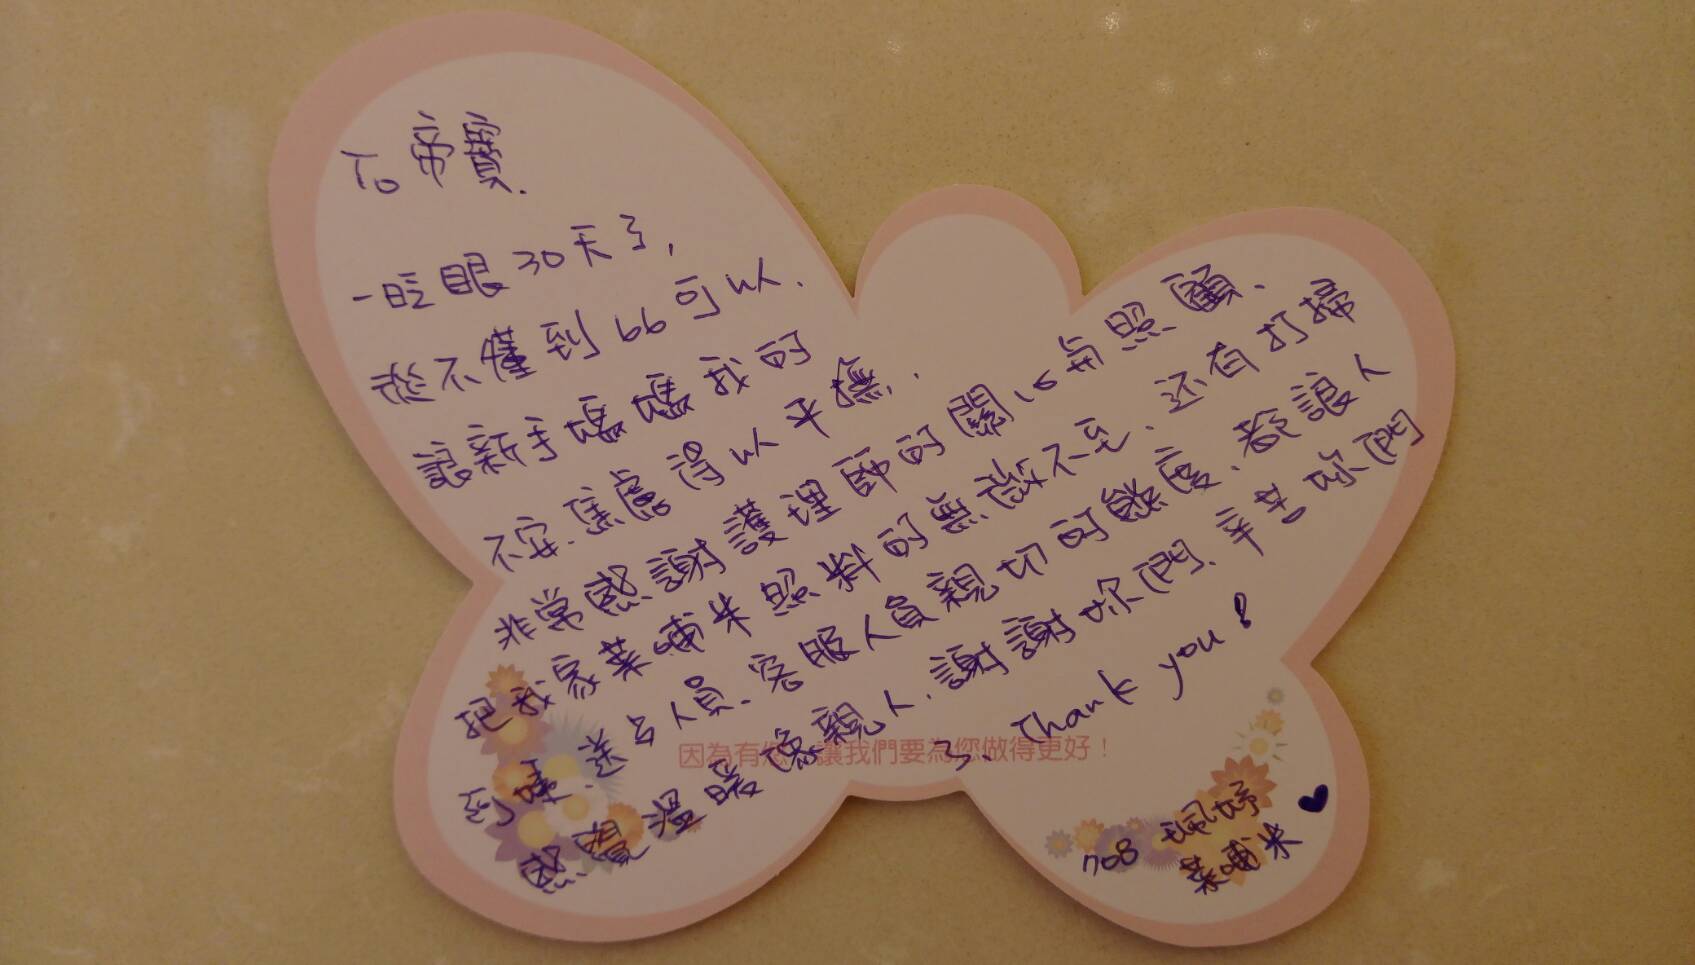 To 帝寶.
一眨眼30天了,
從不懂到bb可以.
讓新手媽媽我的
不安.焦慮得以平撫.
非常感謝護理師的關心與照顧.
把我家菜哺米照料的無微不至.還有打掃
到味.送ㄘ人員.客服人員親切的態度.都讓人
感覺溫暖像親人.謝謝妳們.辛苦妳們
了. Thank you!
因為有您 讓我們要為您做得更好!
708 珮妤
菜哺米